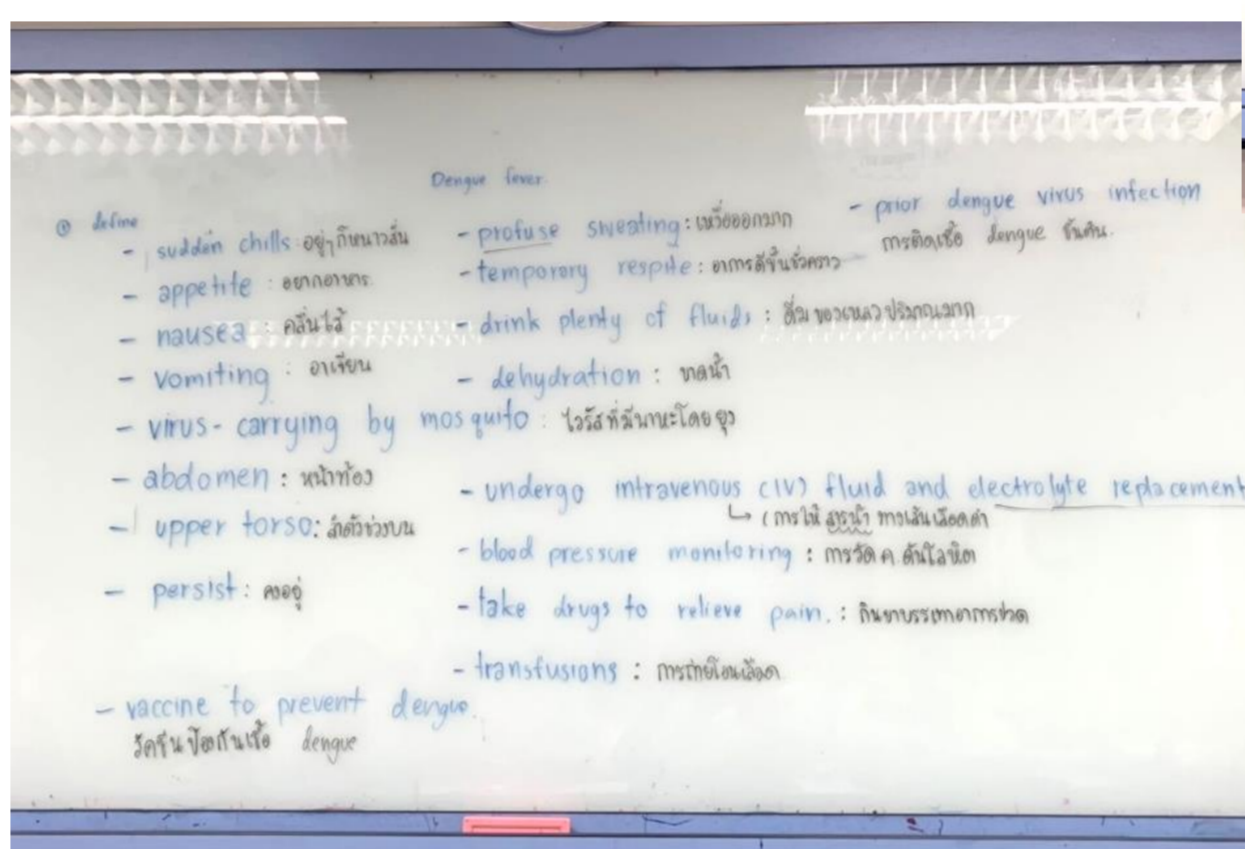 Dengue fever.
① define
- sudden chills อยู่ๆก็หนาวสั่น
- appetite : อยากอาหาร
- nausea : คลื่นไส้
- vomiting : อาเจียน
- virus-carrying by mosquito : ไวรัสที่มีพาหะโดยยุง
- abdomen : หน้าท้อง
- upper torso: ลำตัวช่วงบน
- persist: คงอยู่
- vaccine to prevent dengue.
วัคซีนป้องกันเชื้อ dengue
- profuse sweating: เหงื่อออกมาก
- temporory respite: อาการดีขึ้นชั่วคราว
- drink plenty of fluids : ดื่มของเหลวปริมาณมาก
- dehydration : ขาดน้ำ
- undergo intravenous (IV) fluid and electrolyte replacement
↳ (การให้สารน้ำ ทางเส้นเลือดดำ
- blood pressure monitoring : การวัด ค. ดันโลหิต
- take drugs to relieve pain. : กินยาบรรเทาอาการปวด
- transfusions : การถ่ายโอนเลือด
- prior dengue virus infection
การติดเชื้อ dengue